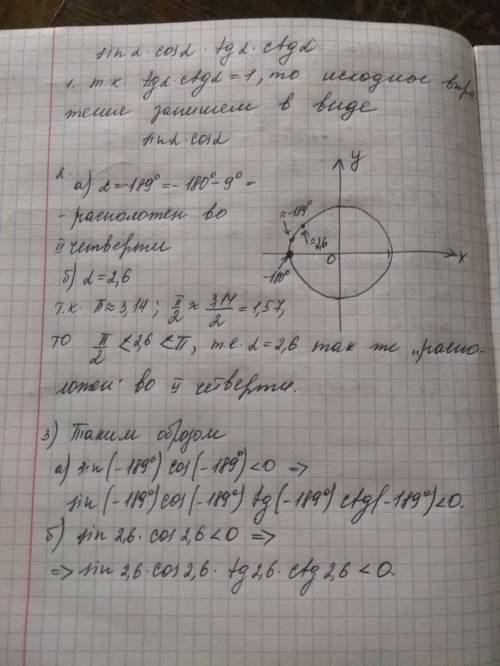 sin α · cos α · tg α · ctg α
1. т.к. tg α · ctg α = 1, то исходное выра-
жение запишем в виде
sin α · cos α
2. а) α = -189° = -180° - 9° -
- расположен во
II четверти
б) α = 2,6
т.к. π ≈ 3,14; π/2 ≈ 3,14/2 = 1,57,
то π/2 < 2,6 < π, т.е. α = 2,6 так же распо-
ложен во II четверти.
y
≈ -189°
≈ 2,6
-180°
0
x
3) Таким образом
а) sin(-189°) cos(-189°) < 0 =>
sin(-189°) cos(-189°) tg(-189°) ctg(-189°) < 0.
б) sin 2,6 · cos 2,6 < 0 =>
=> sin 2,6 · cos 2,6 · tg 2,6 · ctg 2,6 < 0.